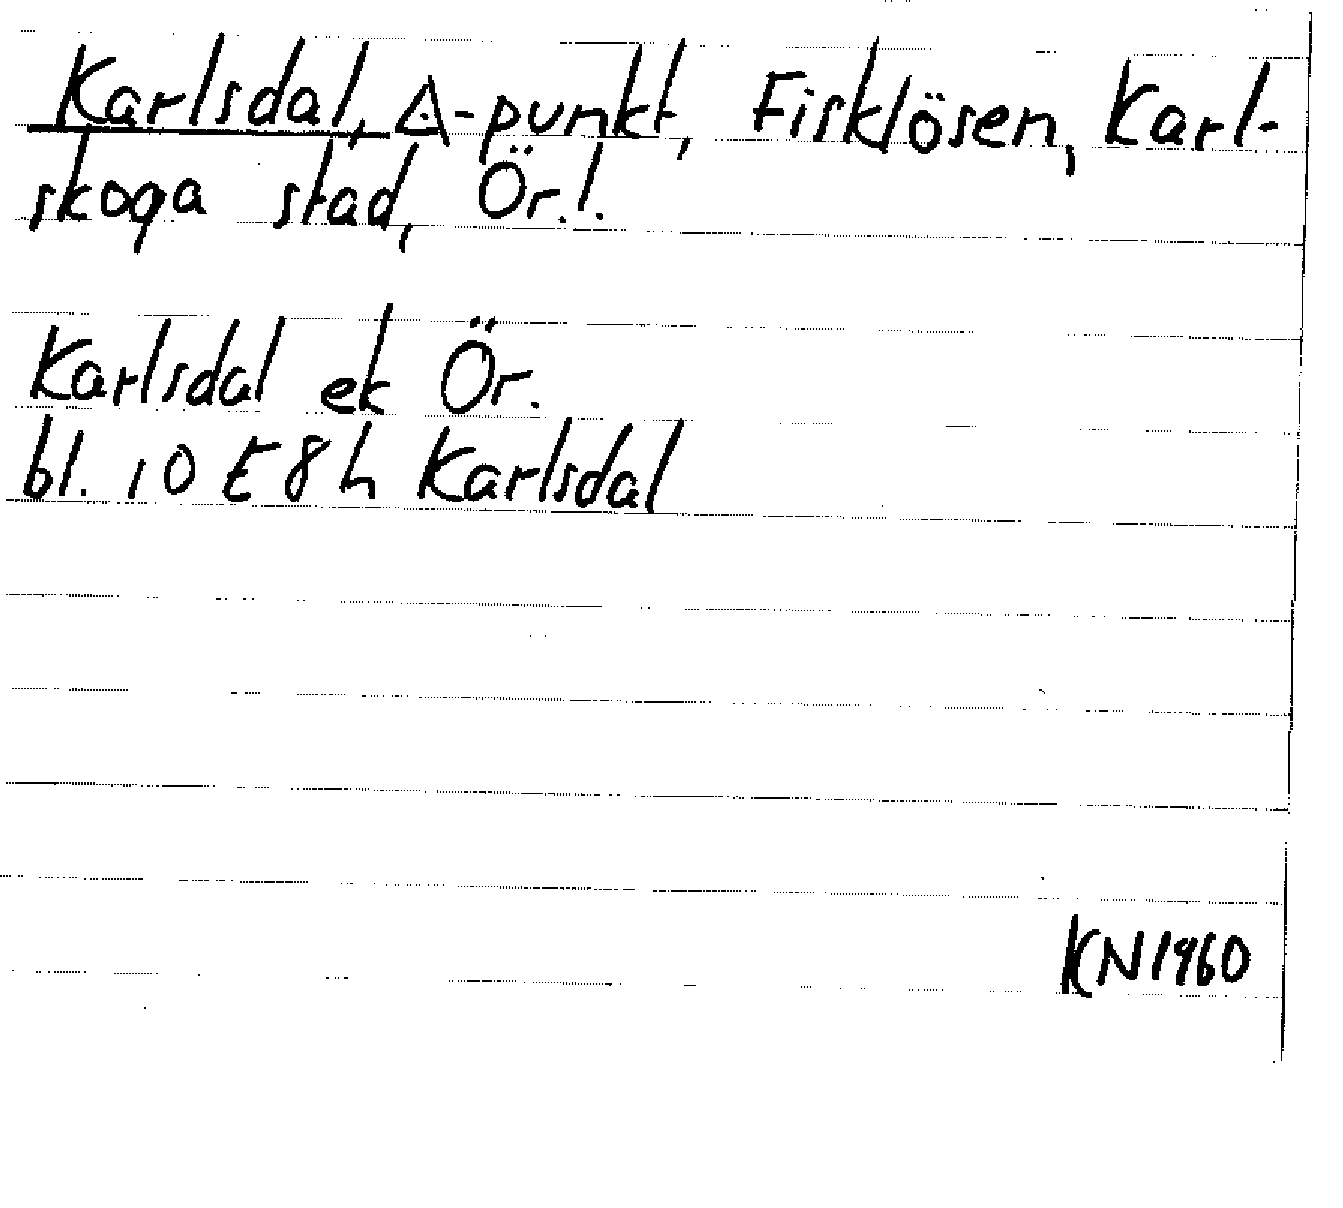 Karlsdal, △-punkt, Fisklösen, Karl-
skoga stad, Ör.l.
Karlsdal ek Ör.
bl. 10 E 8 h Karlsdal
KN 1960